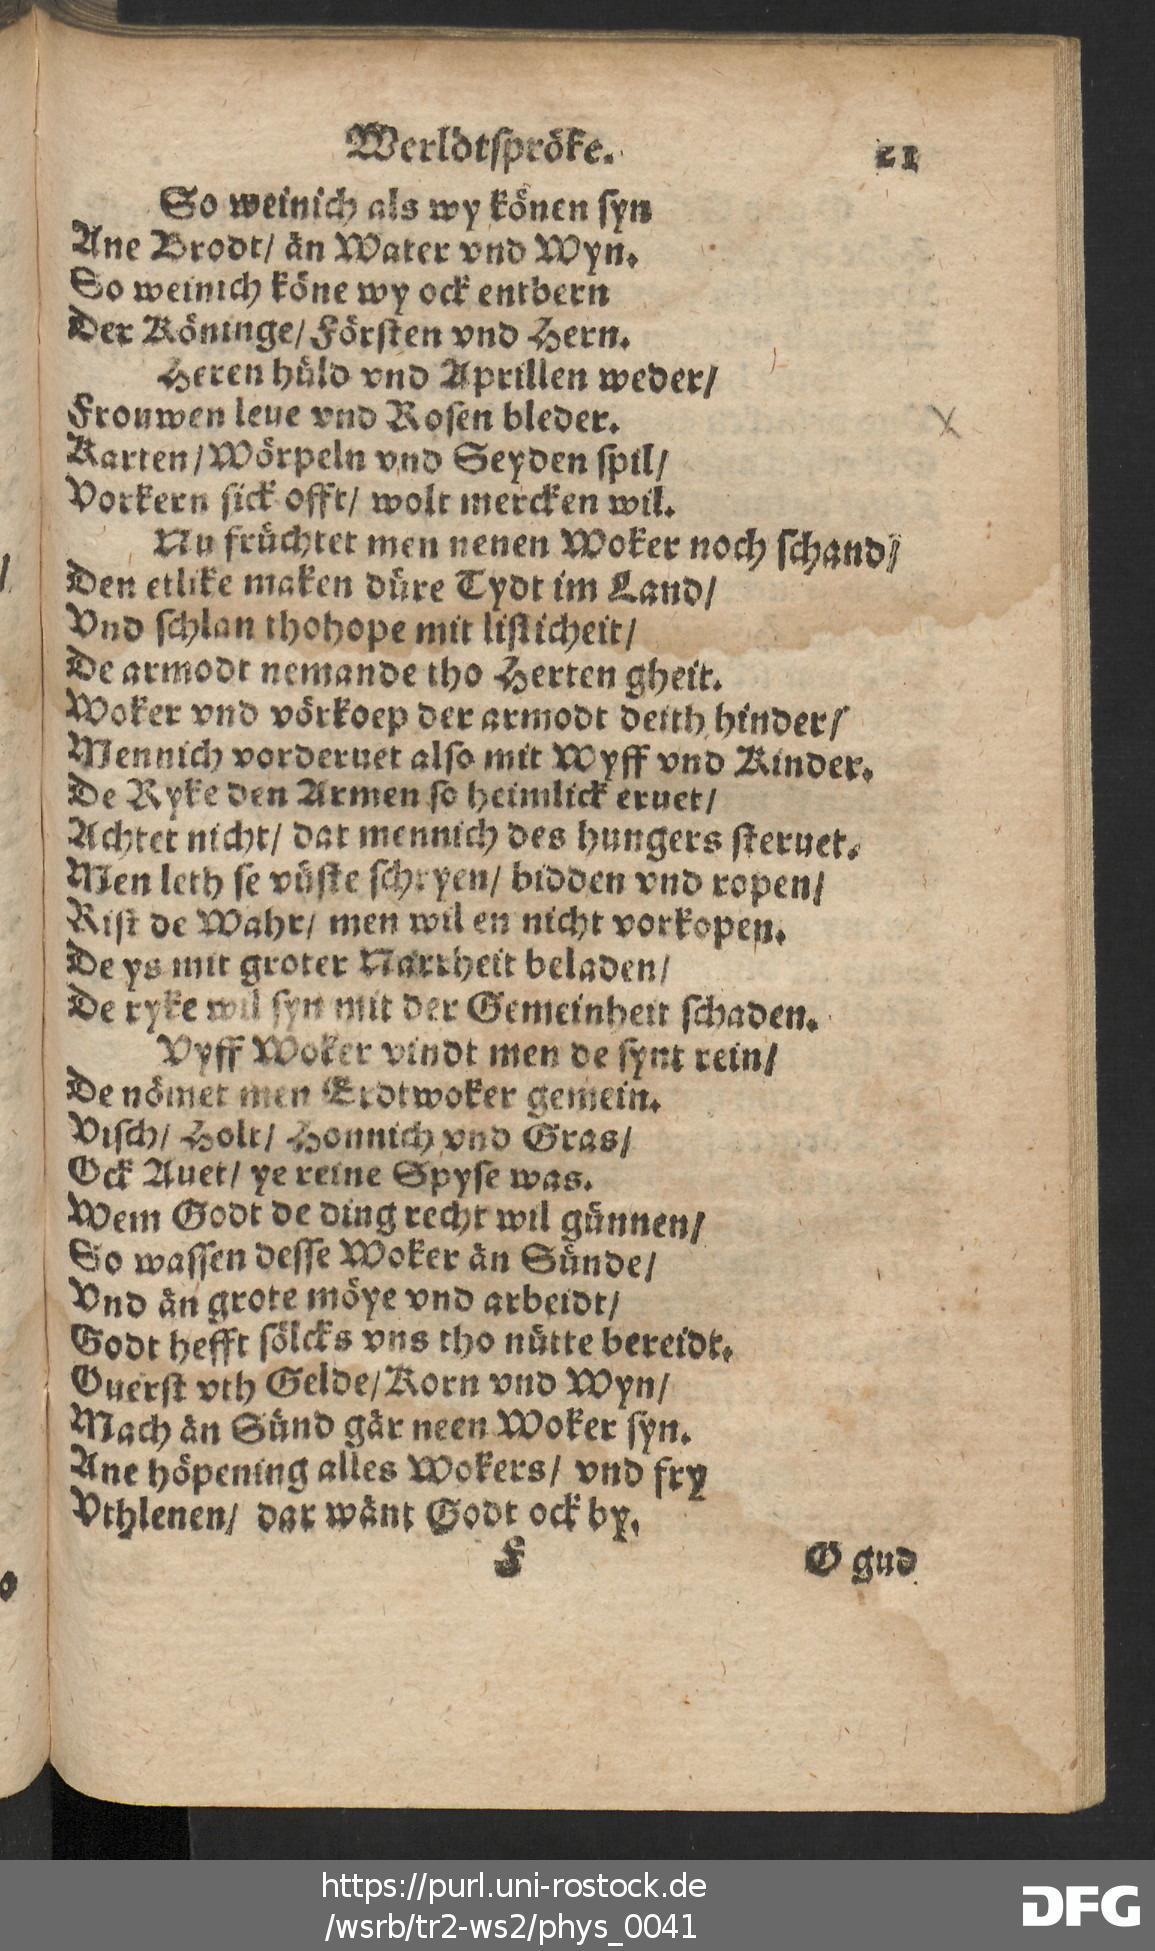 Werldtspröke. 21
So weinich als wy könen syn
Ane Brodt/ än Water vnd Wyn.
So weinich köne wy ock entbern
Der Köninge/ Försten vnd Hern.
Heren hüld vnd Aprillen weder/
Frouwen leue vnd Rosen bleder.
Karten/ Wörpeln vnd Seyden spil/
Vorkern sick offt/ wolt mercken wil.
Nu früchtet men nenen Woker noch schand/
Den etlike maken düre Tydt im Land/
Vnd schlan thohope mit listicheit/
De armodt nemande tho Herten gheit.
Woker vnd vörkoep der armodt deith hinder/
Mennich vorderuet also mit Wyff vnd Kinder.
De Ryke den Armen so heimlick eruet/
Achtet nicht/ dat mennich des hungers steruet.
Men leth se vüste schryen/ bidden vnd ropen/
Rist de Wahr/ men wil en nicht vorkopen.
De ys mit groter Narrheit beladen/
De ryke wil syn mit der Gemeinheit schaden.
Vyff Woker vindt men de synt rein/
De nömet men Erdtwoker gemein.
Visch/ Holt/ Honnich vnd Gras/
Ock Auet/ ye reine Spyse was.
Wem Godt de ding recht wil günnen/
So wassen desse Woker än Sünde/
Vnd än grote möye vnd arbeidt/
Godt hefft sölcks vns tho nütte bereidt.
Ouerst vth Gelde/ Korn vnd Wyn/
Mach än Sünd gär neen Woker syn.
Ane höpening alles Wokers/ vnd fry
Vthlenen/ dar wänt Godt ock by.
F O gud
https://purl.uni-rostock.de
/wsrb/tr2-ws2/phys_0041
DFG